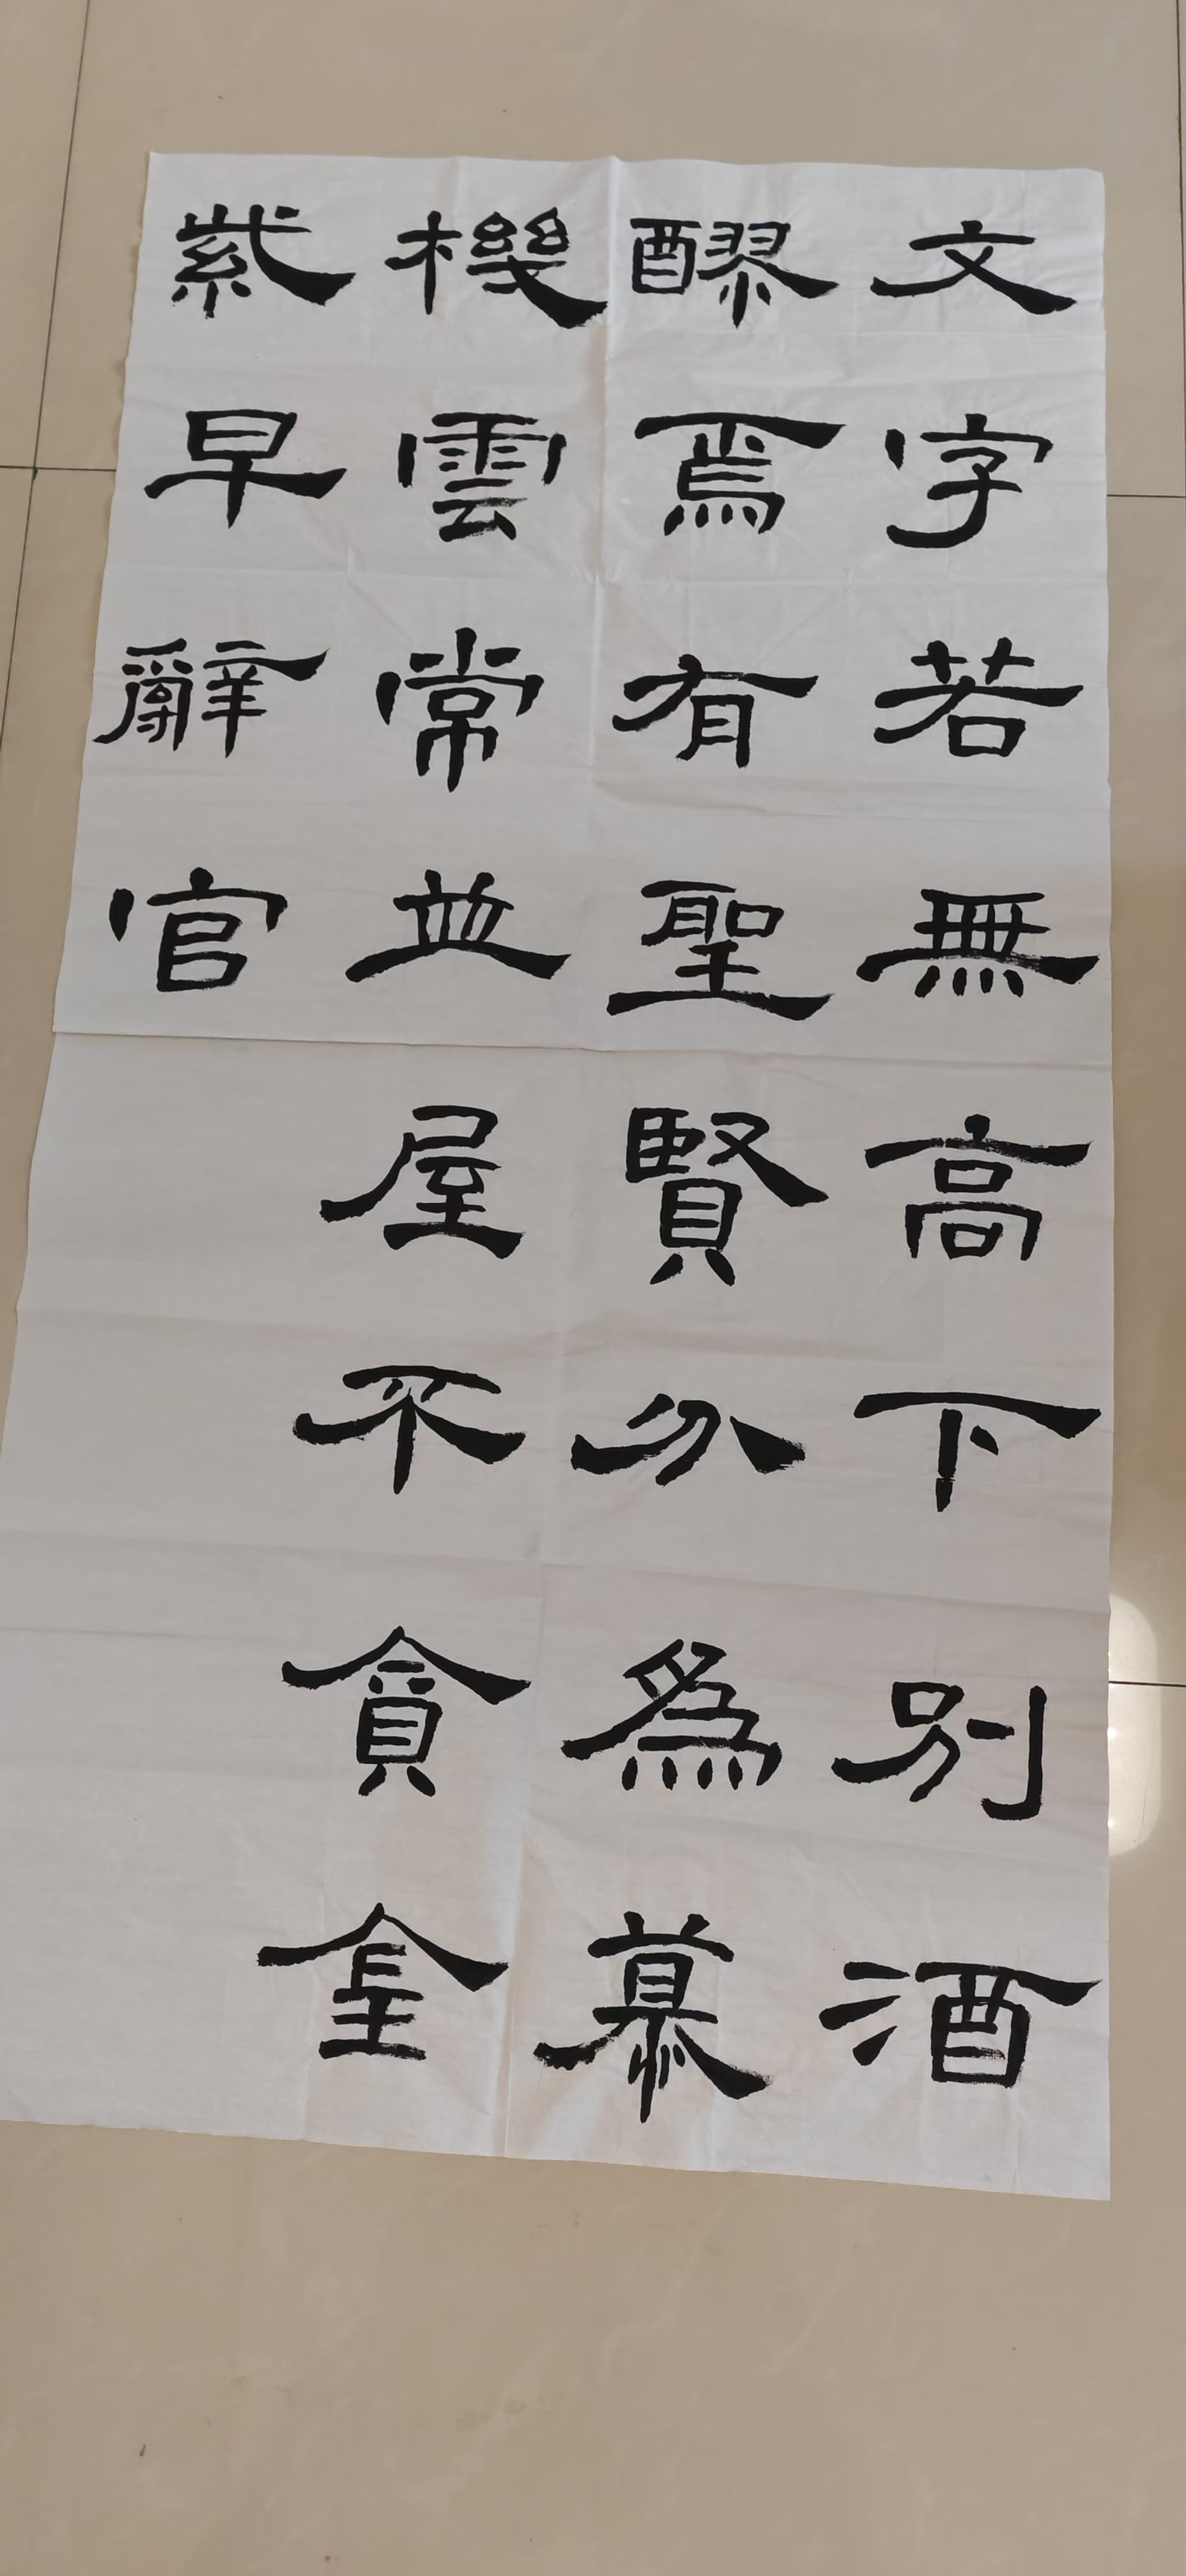 文字若無高下別酒
醪焉有聖賢分為慕
機雲常並屋不貪金
紫早辭官